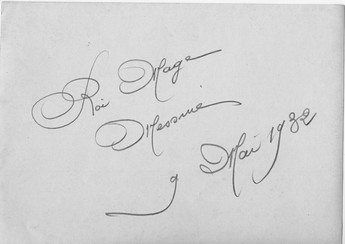 Roi Mage
Messmie
9 Mai 1932